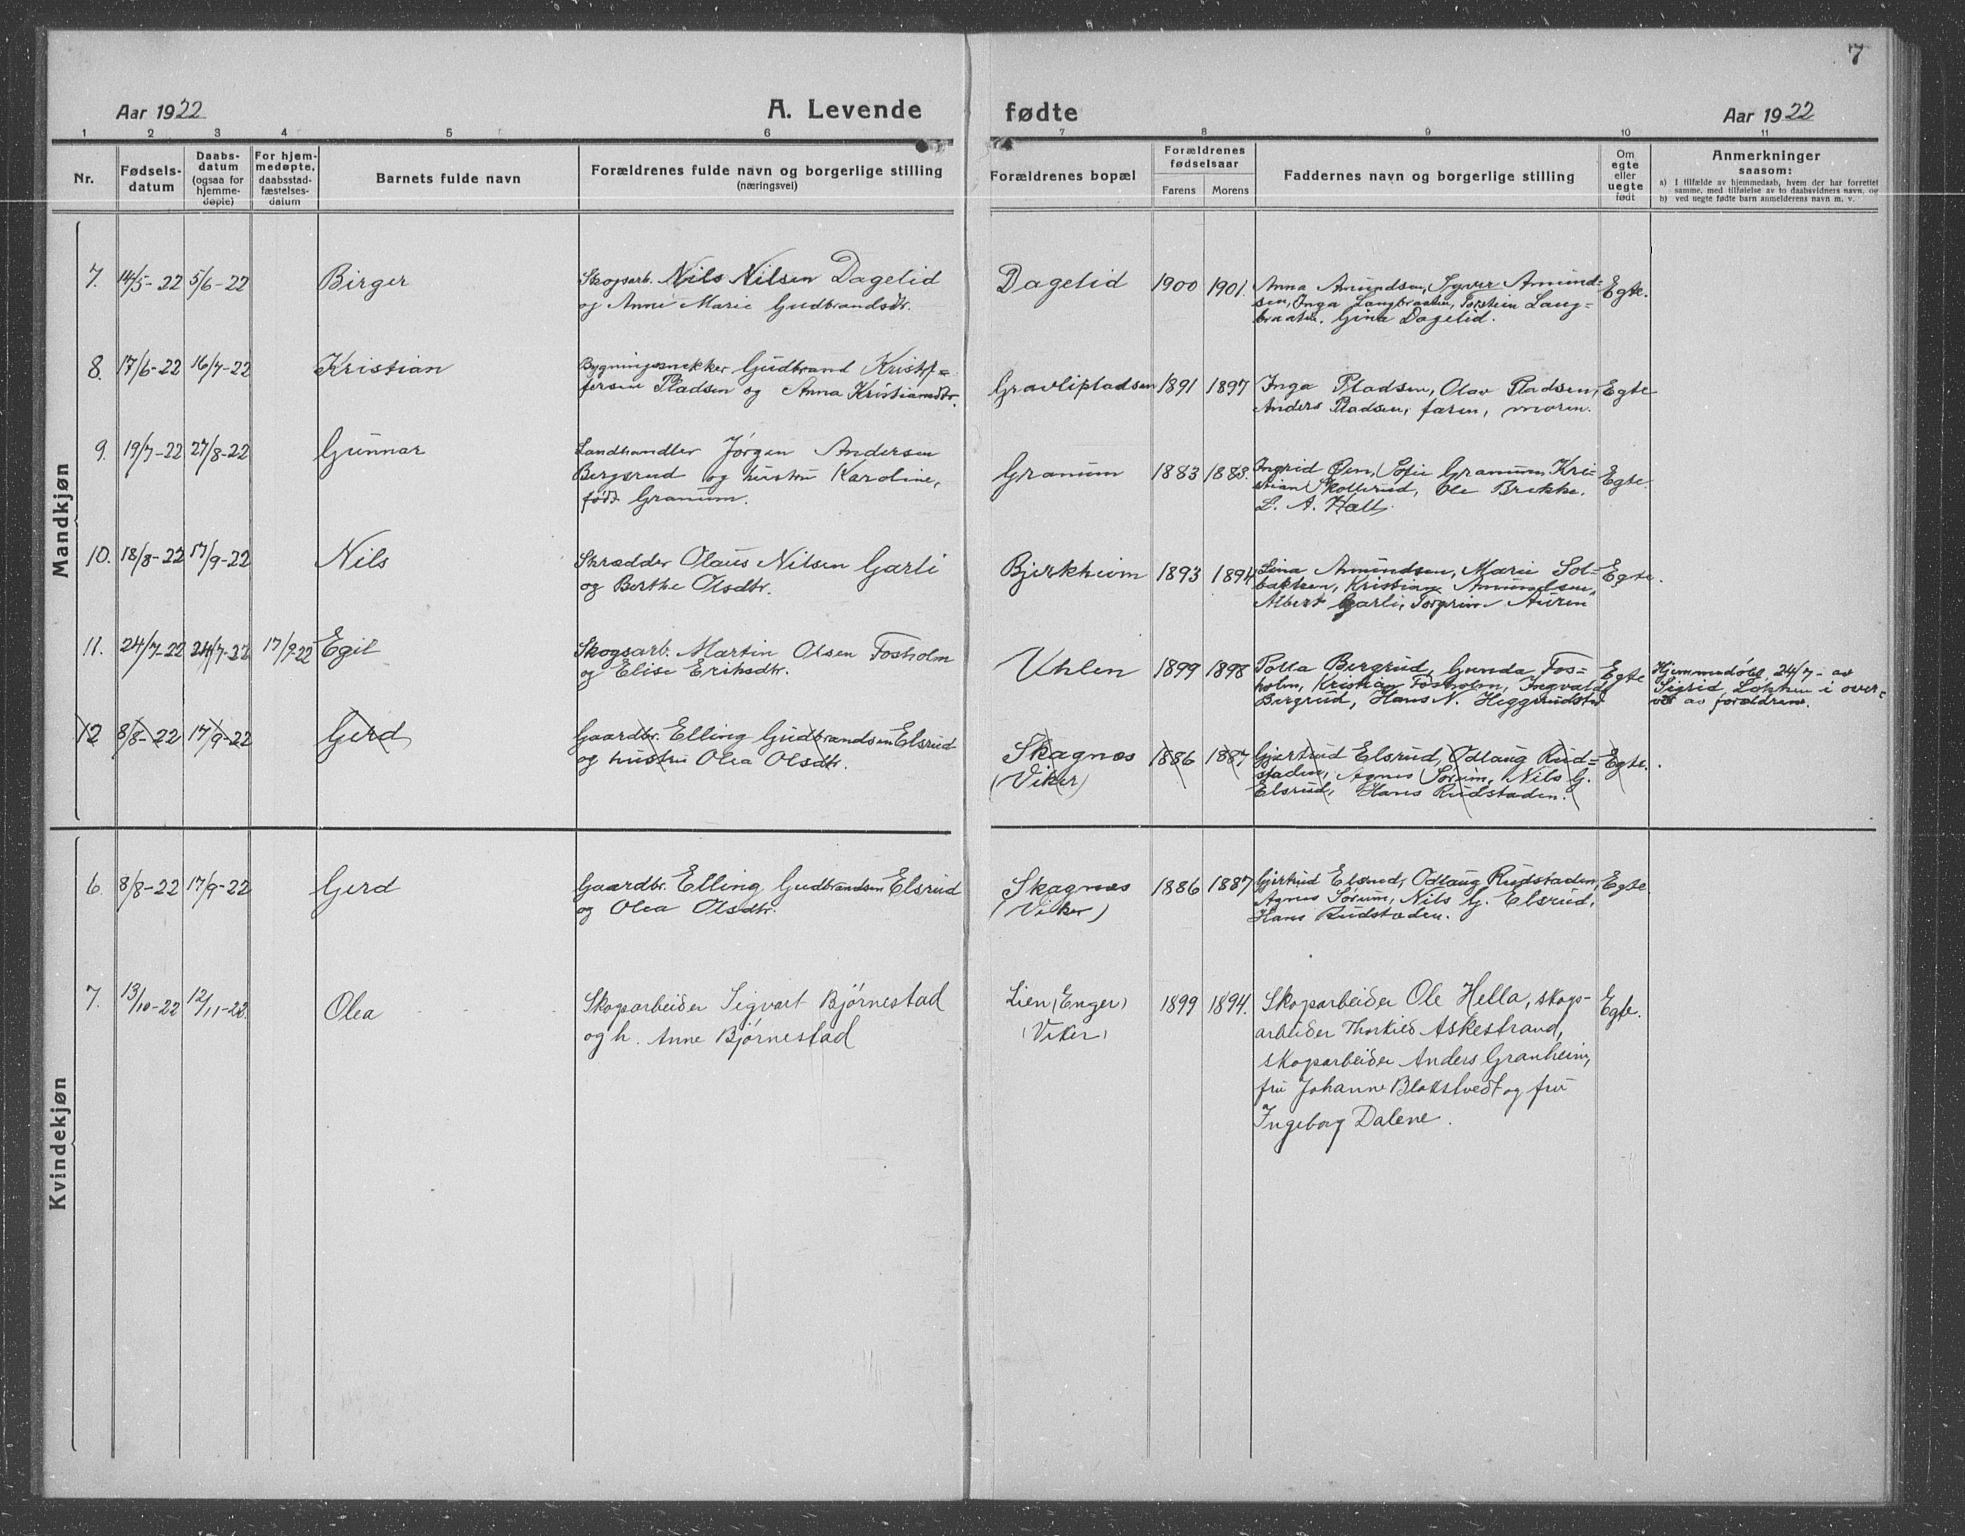 7
Aar 1922 A. Levende fødte Aar 1922
1 2 3 4 5 6 7 8 9 10 11
Nr.
Fødsels-
datum
Daabs-
datum
(ogsaa for
hjemme-
døpte)
For hjem-
medøpte,
daabsstad-
fæstelses-
datum
Barnets fulde navn
Forældrenes fulde navn og borgerlige stilling
(næringsvei)
Forældrenes bopæl
Forældrenes
fødselsaar
Farens Morens
Faddernes navn og borgerlige stilling
Om
egte
eller
uegte
født
Anmerkninger
saasom:
a) I tilfælde av hjemmedaab, hvem der har forrettet
samme, med tilføielse av to daabsvidners navn, og
b) ved uegte fødte barn anmelderens navn m. v.
Mandkjøn
7. 14/5-22 5/6-22 Birger
Skogsarb. Nils Nilsen Dagelid
og Anne Marie Gudbrandsdtr.
Dagelid 1900 1901.
Anna Amundsen, Syver Amund-
sen, Inga Langbraaten, Torstein Lang-
braaten, Gina Dagelid.
Egte.
8. 17/6-22 16/7-22 Kristian
Bygningssnekker Gudbrand Kristof-
fersen Pladsen og Anna Kristiansdtr.
Gravlipladsen 1891 1897
Inga Pladsen, Olav Pladsen,
Anders Pladsen, faren, moren.
Egte
9. 19/7-22 27/8-22 Gunnar
Landhandler Jørgen Andersen
Bergsrud og hustru Karoline,
født Granum.
Granum 1883 1888.
Ingrid Øen, Sofie Granum, Kri-
stian Skollerud, Ole Brekke.
L. A. Hall.
Egte.
10. 18/8-22 17/9-22 Nils
Skrædder Olaus Nilsen Garli
og Berthe Olsdtr.
Bjerkheim 1893 1894
Lina Amundsen, Marie Sol-
bakken, Kristian Amundsen,
Albert Garli, Torgrim Auren
Egte.
11. 24/7-22 24/7-22 17/9-22 Egil
Skogsarb. Martin Olsen Fosholm
og Elise Eriksdtr.
Uhlen 1899 1898
Bergrud, Gunda Fos-
holm, Kristian Fosholm, Ingvald
Bergrud, Hans N. Heggrudstad
Egte
Hjemmedøbt 24/7 - av
Sigrid Løkken i over-
vær av forældrene.
12 8/8-22 17/9-22 Gerd
Gaardbr. Elling Gudbrandsen Elsrud
og hustru Olea Olsdtr.
Skagnæs
(Viker)
1886 1887
Gjertrud Elsrud, Odlaug Rud-
staden, Agnes Sørum, Nils G.
Elsrud, Hans Rudstaden.
Egte.
Kvindekjøn
6. 8/8-22 17/9-22 Gerd
Gaardbr. Elling Gudbrandsen Elsrud
og Olea Olsdtr.
Skagnæs
(Viker)
1886 1887
Gjertrud Elsrud, Odlaug Rudstaden,
Agnes Sørum, Nils G. Elsrud,
Hans Rudstaden.
Egte.
7. 13/10-22 12/11-22. Olea
Skogarbeider Sigvart Bjørnestad
og h. Anne Bjørnestad
Lien (Enger)
(Viker)
1899 1894.
Skogarbeider Ole Hella, skogs-
arbeider Askestrand,
skogarbeider Anders Granheim,
fru Johanne og fru
Ingeborg Dalene.
Egte.